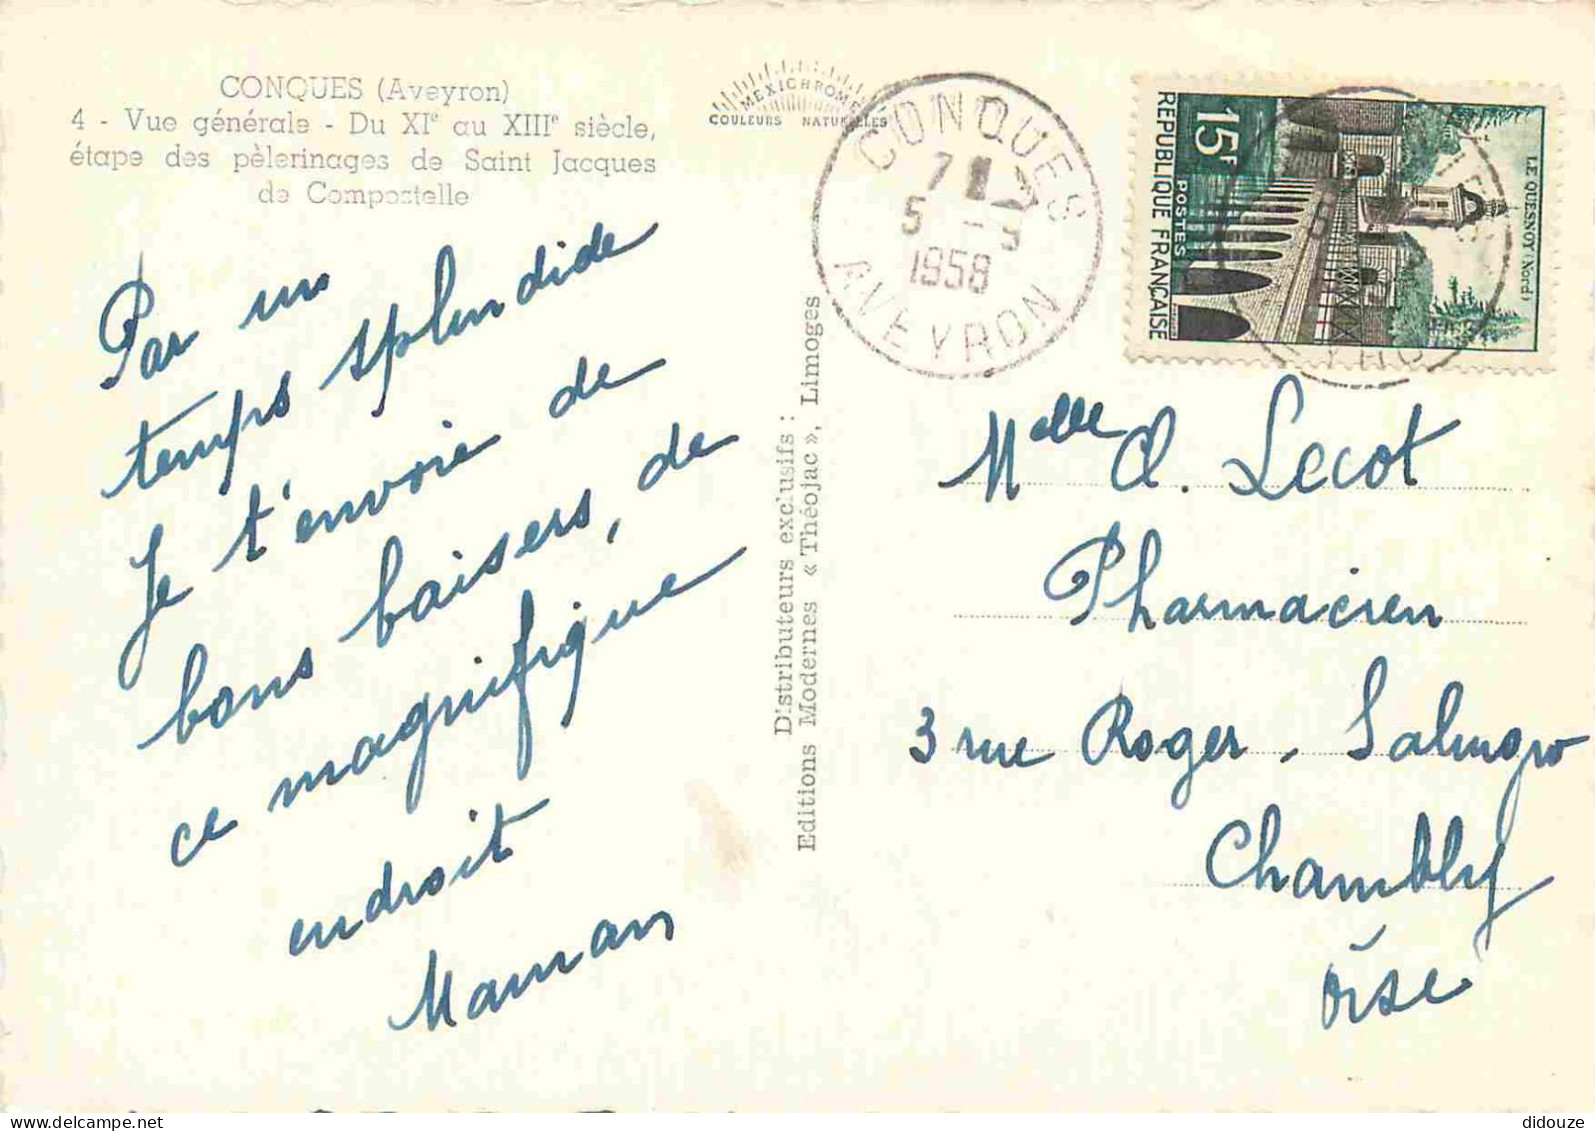 CONQUES (Aveyron)
4 - Vue générale - Du XIe au XIIIe siècle,
étape des pèlerinages de Saint Jacques
de Compostelle
MEXICHROME
COULEURS NATURELLES
Par un
temps splendide
Je t'envoie de
bons baisers, de
ce magnifique
endroit
Maman
Distributeurs exclusifs :
Editions Modernes « Théojac », Limoges
CONQUES
7
5 - 9
1958
AVEYRON
15F
REPUBLIQUE FRANÇAISE
POSTES
LE QUESNOY (Nord)
Melle O. Lecot
Pharmacien
3 rue Roger. Salengro
Chambly
Oise
didouze